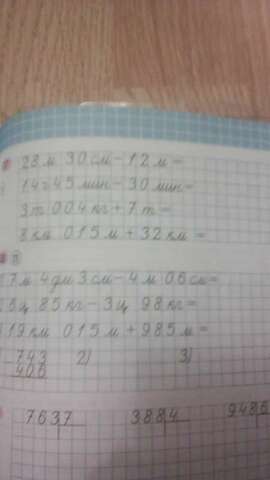 28 м 30 см - 12 м =
14 ч 45 мин - 30 мин =
3 т 004 кг + 7 т =
8 км 015 м + 32 км =
7 м 4 дм 3 см - 4 м 06 см =
85 кг - 3 ц 98 кг =
19 км 015 м + 985 м =
743 2) 3)
406
7637 3884 9486